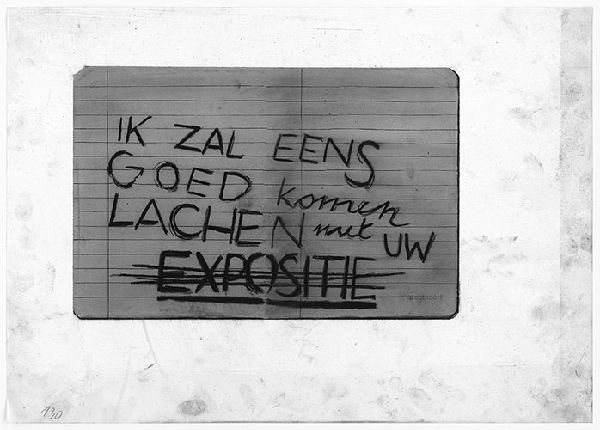 IK ZAL EENS
GOED komen
LACHEN met UW
EXPOSITIE
130